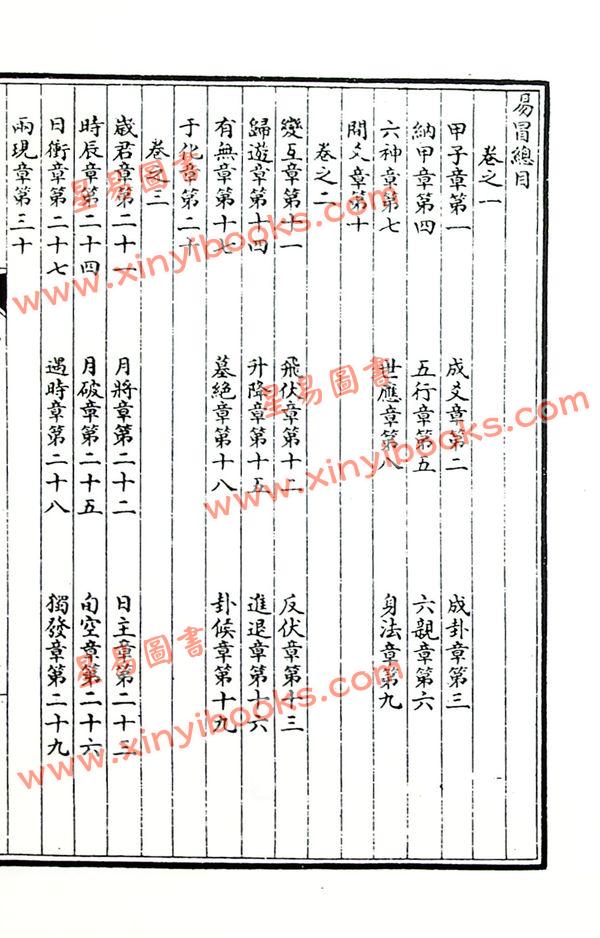 易冒總目
卷之一
甲子章第一 成爻章第二 成卦章第三
納甲章第四 五行章第五 六親章第六
六神章第七 世應章第八 身法章第九
間爻章第十
卷之二
變互章第十一 飛伏章第十二 反伏章第十三
歸遊章第十四 升降章第十五 進退章第十六
有無章第十七 墓絕章第十八 卦候章第十九
于化章第二十
卷之三
歲君章第二十一 月將章第二十二 日主章第二十三
時辰章第二十四 月破章第二十五 旬空章第二十六
日衝章第二十七 遇時章第二十八 獨發章第二十九
兩現章第三十
星易圖書
www.xinyibooks.com
星易圖書
www.xinyibooks.com
星易圖書
www.xinyibooks.com